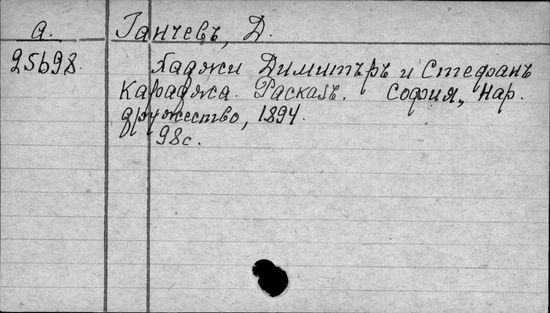 а. Ганчевъ, Д.
25698 Хаджи Димитъръ и Стефанъ
Караджа. Расказъ. София, Нар.
дружество, 1894.
98с.